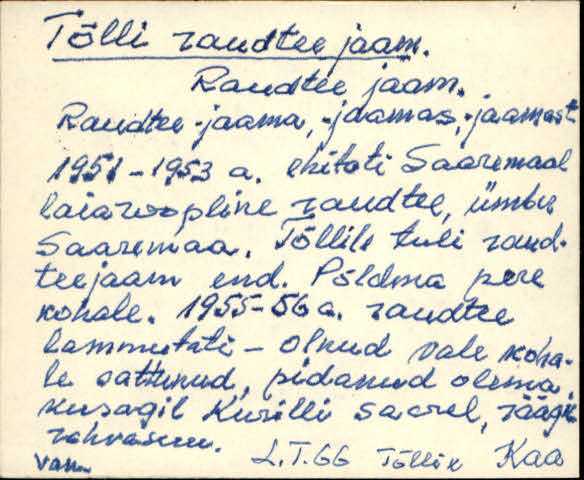 Tõlli raudtee jaam.
Raudtee jaam.
Raudtee -jaama, -jaamas, -jaamast
1951-1953 a. ehitati Saaremaal
laiaroopline raudtee, ümber
Saaremaa. Tõllile tuli raud-
teejaam end. Põldma pere
kohale. 1955-56 a. raudtee
lammutati - olnud vale koha-
le sattunud, pidanud olema
kusagil Kurilli saarel, räägib
rahvasuu.
Van. L.T.66 Tõllik Kaa